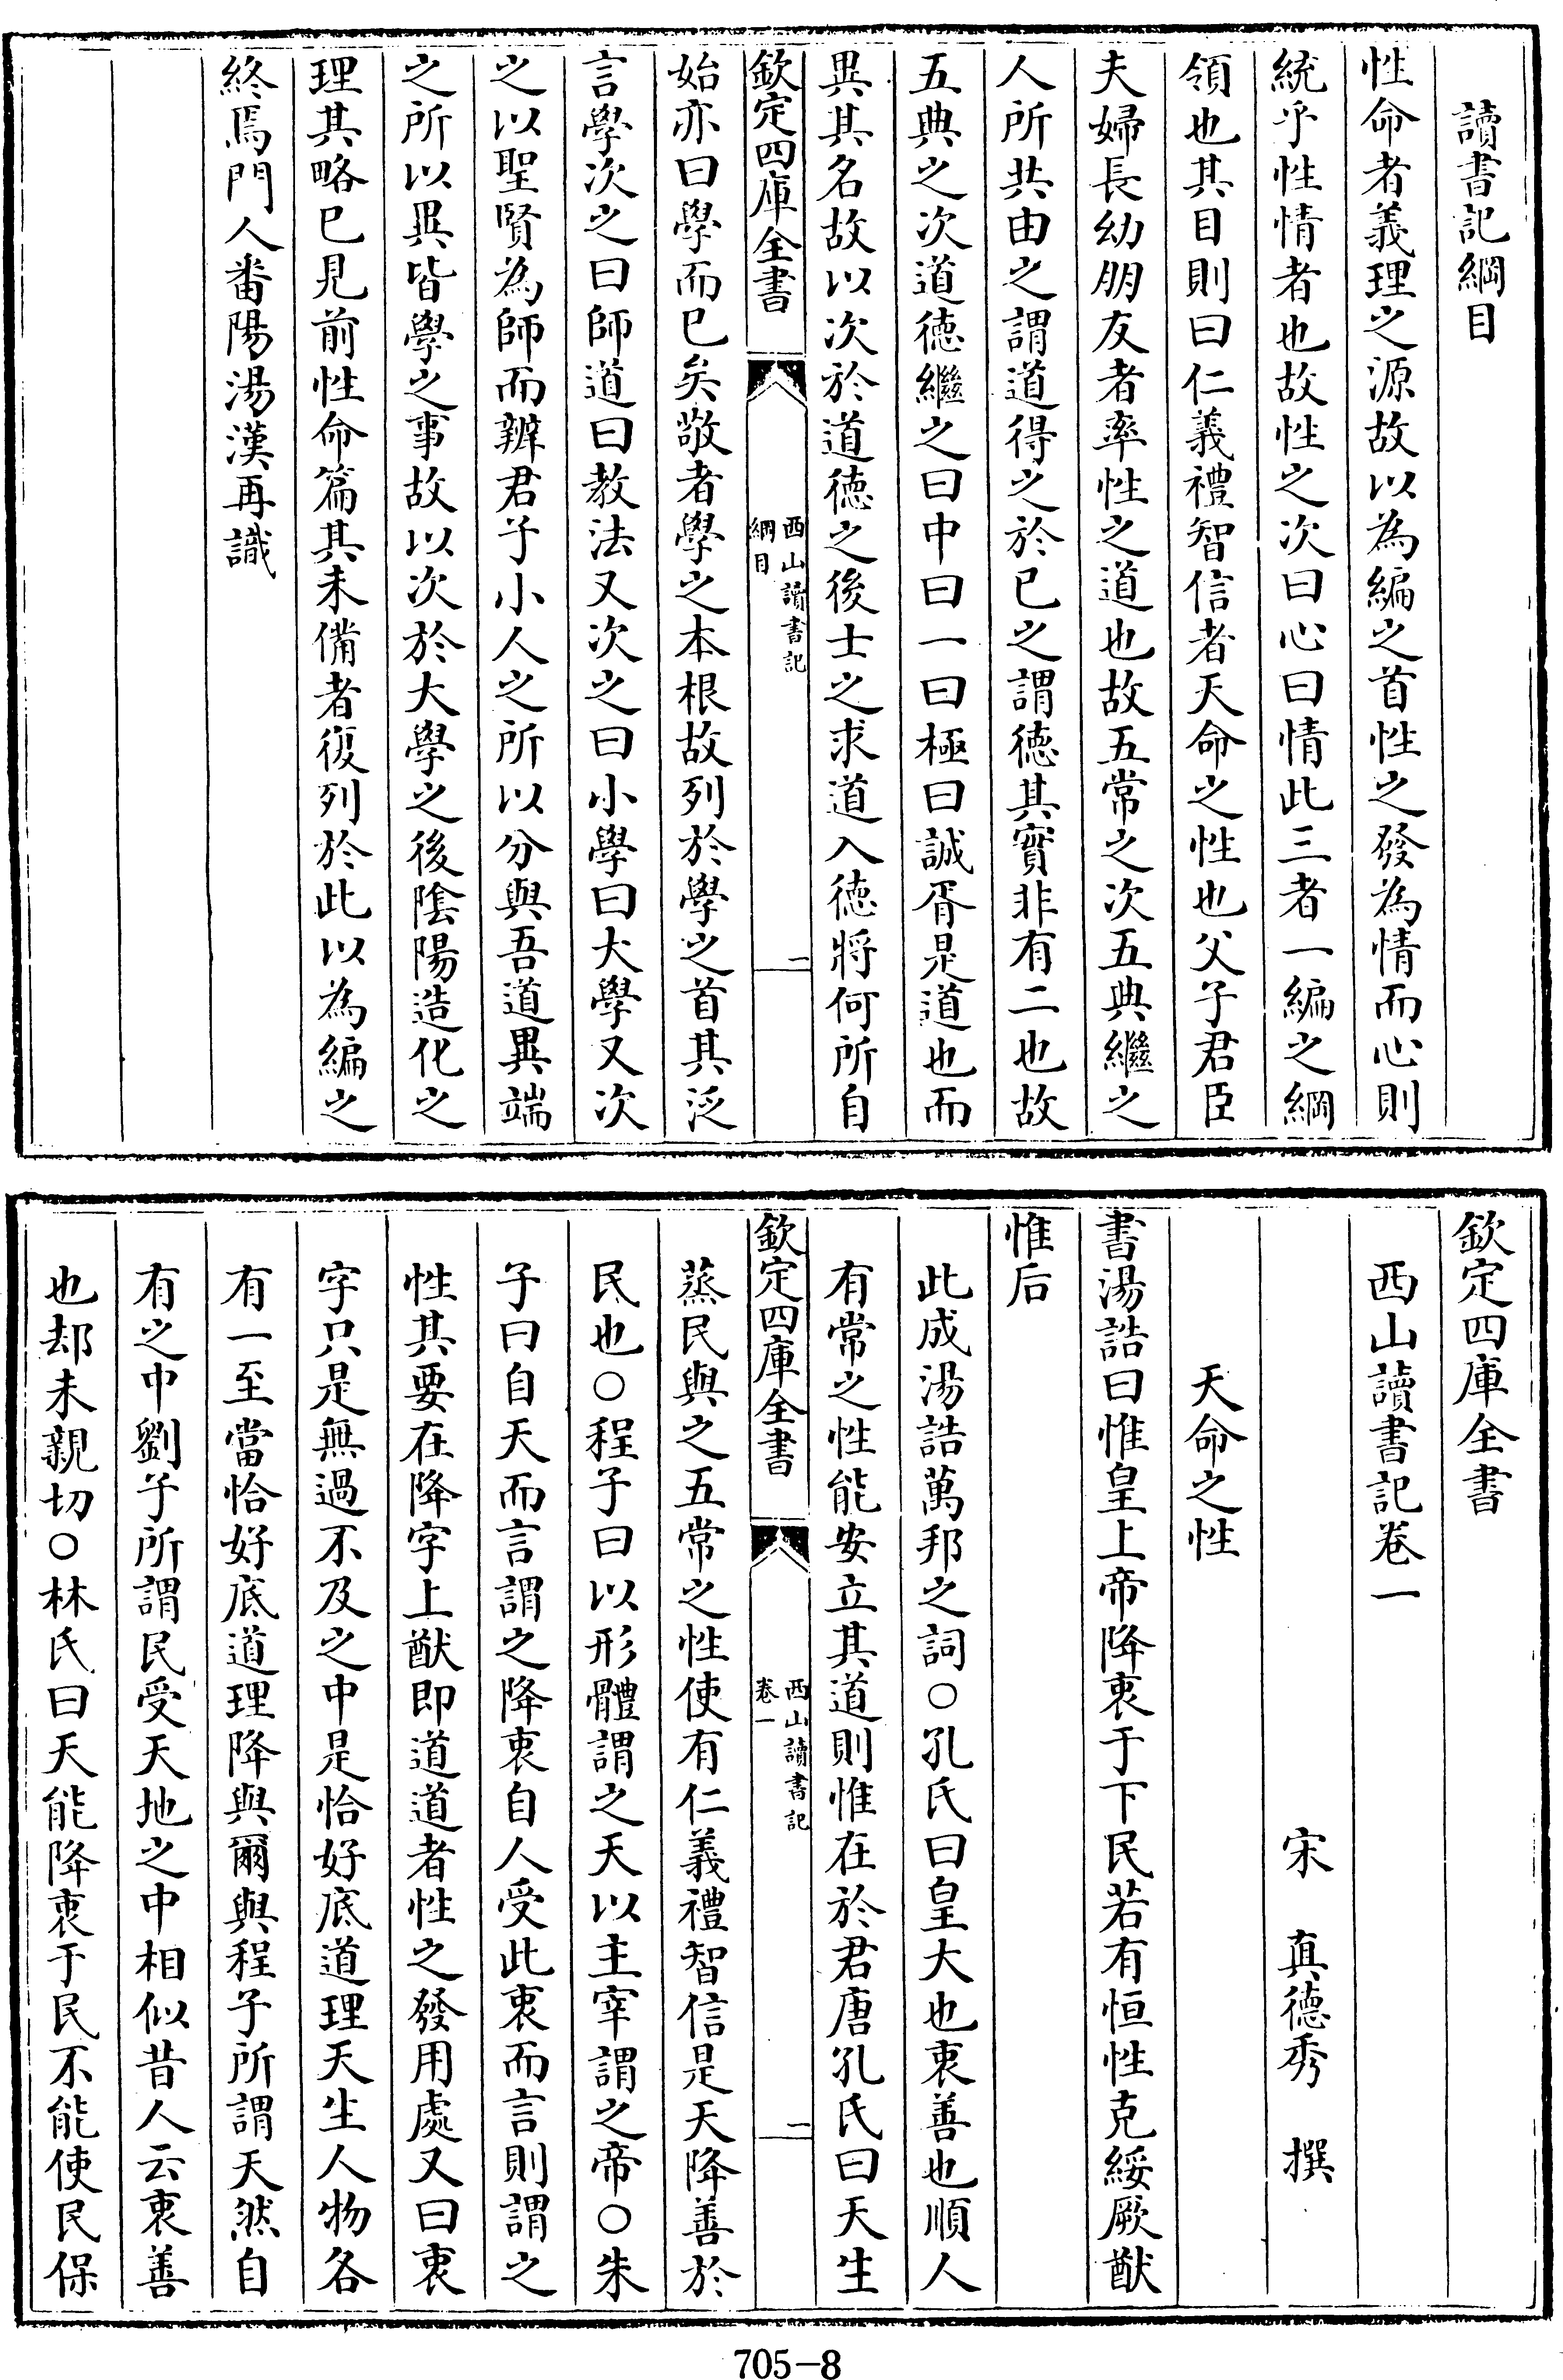 讀書記綱目
性命者義理之源故以為編之首性之發為情而心則
統乎性情者也故性之次曰心曰情此三者一編之綱
領也其目則曰仁義禮智信者天命之性也父子君臣
夫婦長幼朋友者率性之道也故五常之次五典繼之
人所共由之謂道得之於已之謂徳其實非有二也故
五典之次道徳繼之曰中曰一曰極曰誠胥是道也而
異其名故以次於道徳之後士之求道入徳將何所自
欽定四庫全書
西山讀書記
綱目
二
始亦曰學而已矣敬者學之本根故列於學之首其泛
言學次之曰師道曰教法又次之曰小學曰大學又次
之以聖賢為師而辨君子小人之所以分與吾道異端
之所以異皆學之事故以次於大學之後隂陽造化之
理其略已見前性命篇其未備者復列於此以為編之
終焉門人番陽湯漢再識
欽定四庫全書
西山讀書記卷一
宋 真徳秀 撰
天命之性
書湯誥曰惟皇上帝降衷于下民若有恒性克綏厥猷
惟后
此成湯誥萬邦之詞○孔氏曰皇大也衷善也順人
有常之性能安立其道則惟在於君唐孔氏曰天生
欽定四庫全書
西山讀書記
卷一
一
蒸民與之五常之性使有仁義禮智信是天降善於
民也○程子曰以形體謂之天以主宰謂之帝○朱
子曰自天而言謂之降衷自人受此衷而言則謂之
性其要在降字上猷即道道者性之發用處又曰衷
字只是無過不及之中是恰好底道理天生人物各
有一至當恰好底道理降與爾與程子所謂天然自
有之中劉子所謂民受天地之中相似昔人云衷善
也却未親切○林氏曰天能降衷于民不能使民保
705-8